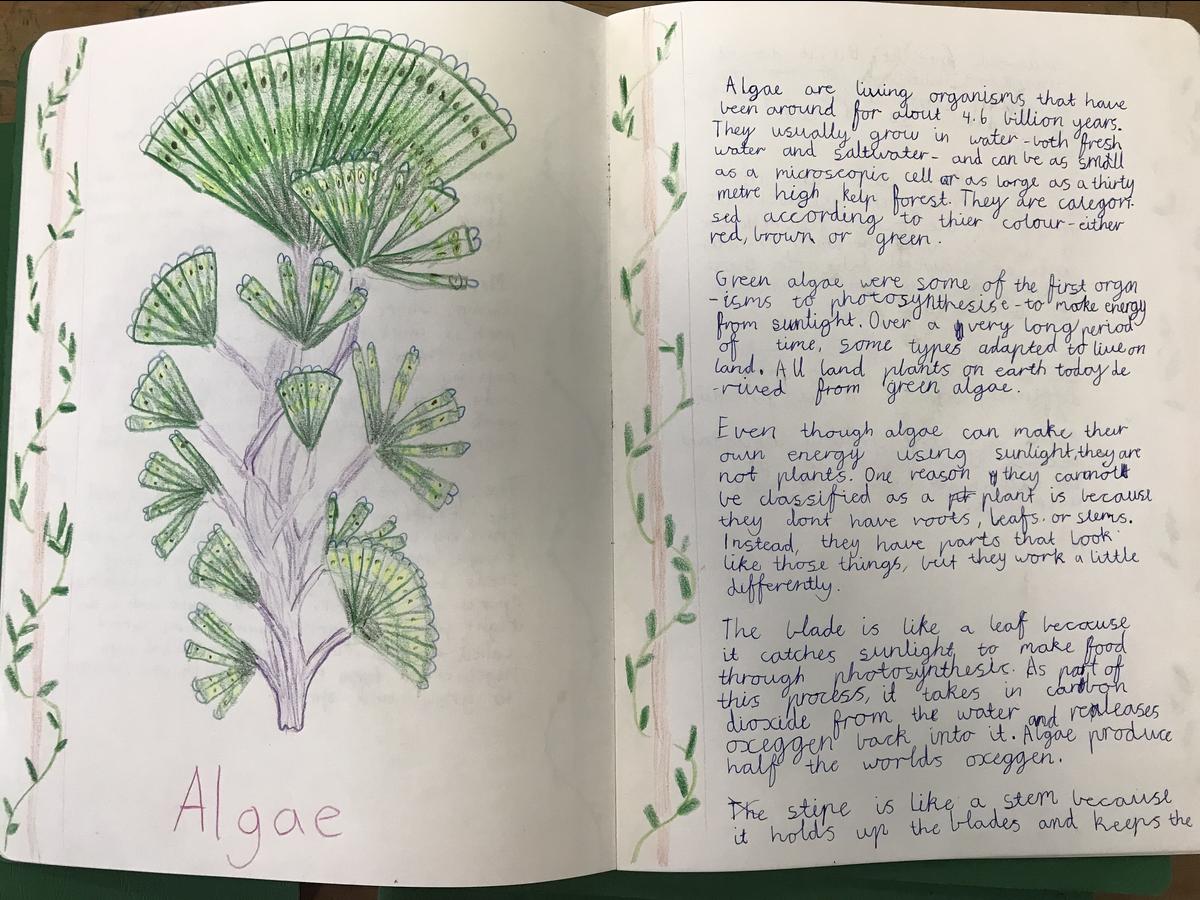 Algae
Algae are living organisms that have
been around for about 4.6 billion years.
They usually grow in water - both fresh
water and saltwater - and can be as small
as a microscopic cell or as large as a thirty
metre high kelp forest. They are categori-
sed according to thier colour - either
red, brown or green.
Green algae were some of the first organ
-isms to photosynthesise - to make energy
from sunlight. Over a very long period
of time, some types adapted to live on
land. All land plants on earth today de
-rived from green algae.
Even though algae can make their
own energy using sunlight, they are
not plants. One reason they cannot
be classified as a plant is because
they dont have roots, leafs or stems.
Instead, they have parts that look
like those things, but they work a little
differently.
The blade is like a leaf because
it catches sunlight to make food
through photosynthesis. As part of
this process, it takes in carbon
dioxide from the water and realeases
oxeggen back into it. Algae produce
half the worlds oxeggen.
The stipe is like a stem because
it holds up the blades and keeps the